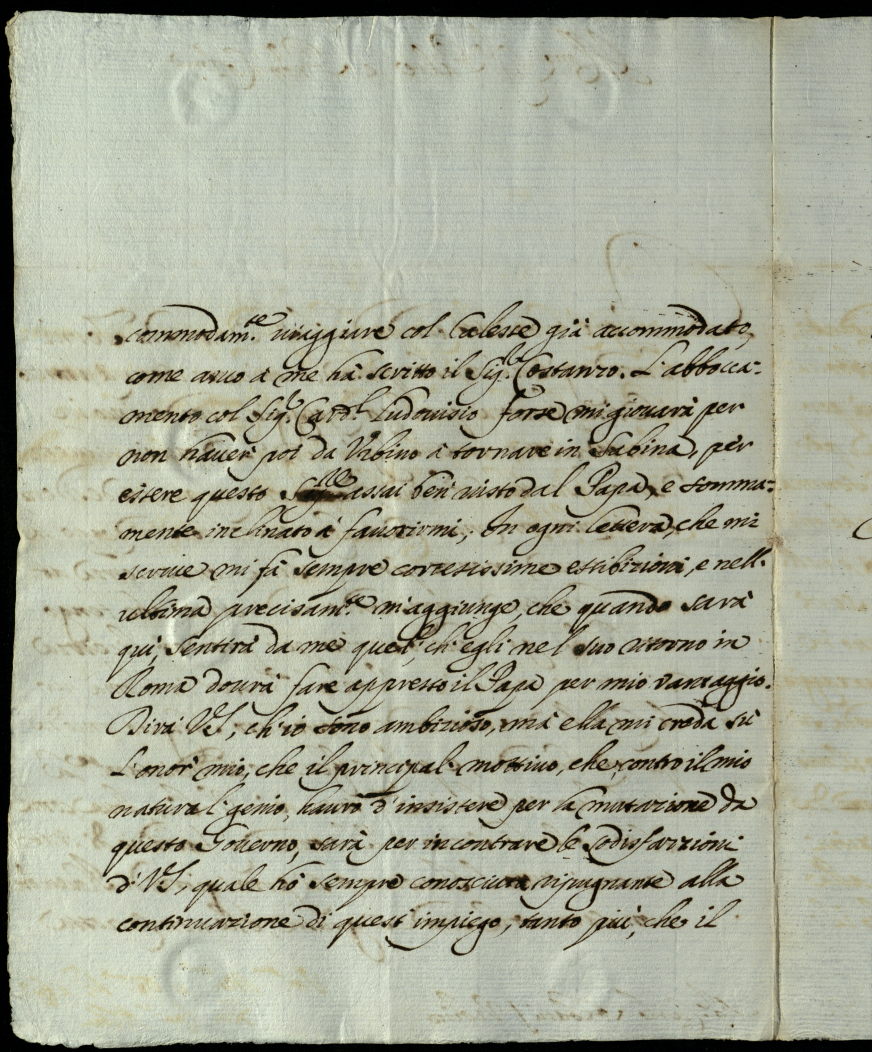 commodam.te viaggiare col Calesse già accommodato,
come anco à me hà scritto il Sig.r Costanzo. L'abbocca-
mento col Sig.r Card.l Ludovisio forse mi giovarà per
non haver poi da Urbino à tornare in Sabina, per
essere questo Sig.re assai ben visto dal Papa, e somma-
mente inclinato à favorirmi; In ogni lettera, che mi
scrive mi fà sempre cortesissime essibizioni, e nell'
ultima precisam.te m'aggiunge, che quando sarà
quì, sentirà da me quel, ch'egli nel suo ritorno in
Roma dovrà fare appresso il Papa per mio vantaggio.
Dirà VS, ch'io sono ambizioso, mà ella mi creda sù
l'onor mio, che il principal mottivo, che contro il mio
natural genio, havrò d'insistere per la mutazione da
questo Governo, sarà per incontrare le sodisfazzioni
di VS, quale hò sempre conosciuta ripugnante alla
continuazione di quest'impiego, tanto più, che il